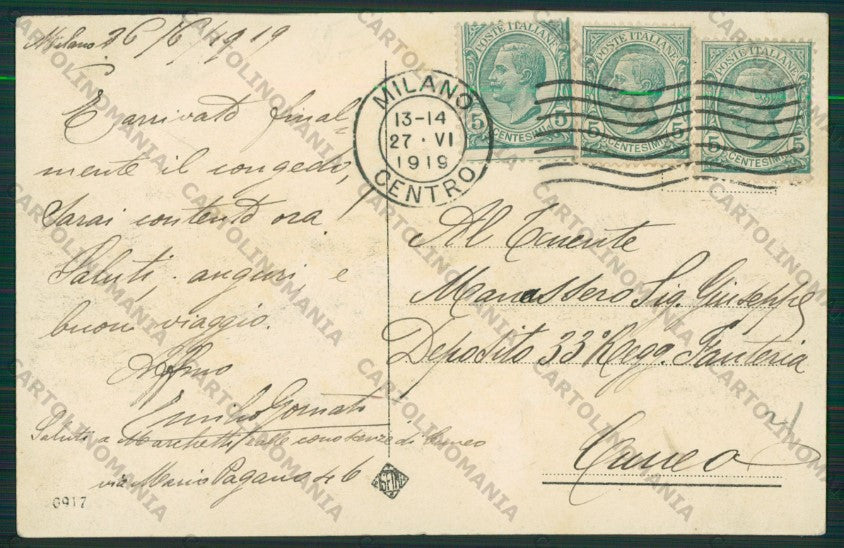 Milano 26/6/1919
È arrivato final-
mente il congedo,
Sarai contento ora
Saluti, auguri, e
buon viaggio.
Affmo
Emilio
Saluti a Marchetti, e alle conoscenze di Cuneo
via Mario Pagano 6
6917
MILANO
13-14
27 · VI
1919
CENTRO
POSTE ITALIANE
5 CENTESIMI 5
POSTE ITALIANE
5 CENTESIMI 5
POSTE ITALIANE
5 CENTESIMI 5
Al Tenente
Manassero Sig. Giuseppe
Deposito 33º Regg. Fanteria
Cuneo
CARTOLINOMANIA